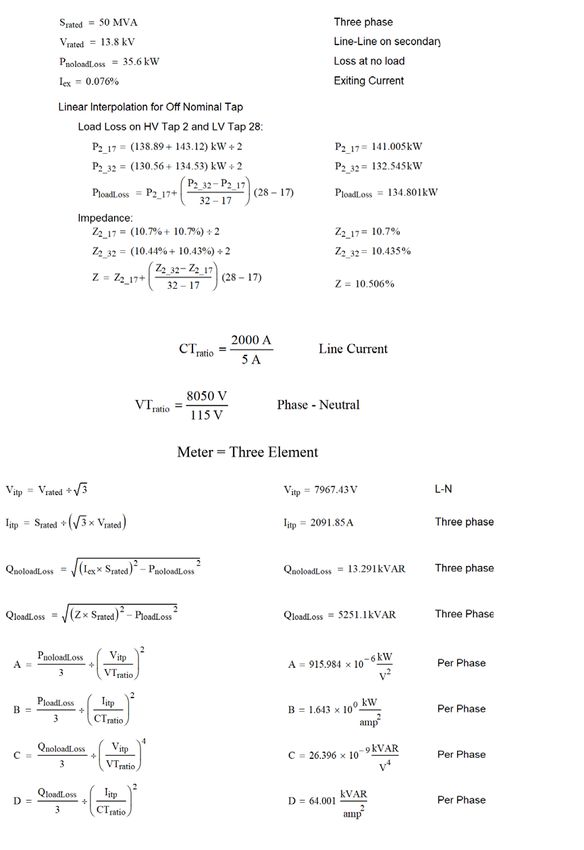 S_rated = 50 MVA Three phase
V_rated = 13.8 kV Line-Line on secondary
P_noloadLoss = 35.6 kW Loss at no load
I_ex = 0.076% Exiting Current
Linear Interpolation for Off Nominal Tap
Load Loss on HV Tap 2 and LV Tap 28:
P_2_17 = (138.89 + 143.12) kW ÷ 2 P_2_17 = 141.005kW
P_2_32 = (130.56 + 134.53) kW ÷ 2 P_2_32 = 132.545kW
P_loadLoss = P_2_17 + ((P_2_32 − P_2_17) / (32 − 17)) (28 − 17) P_loadLoss = 134.801kW
Impedance:
Z_2_17 = (10.7% + 10.7%) ÷ 2 Z_2_17 = 10.7%
Z_2_32 = (10.44% + 10.43%) ÷ 2 Z_2_32 = 10.435%
Z = Z_2_17 + ((Z_2_32 − Z_2_17) / (32 − 17)) (28 − 17) Z = 10.506%
CT_ratio = 2000 A / 5 A Line Current
VT_ratio = 8050 V / 115 V Phase - Neutral
Meter = Three Element
V_itp = V_rated ÷ √3 V_itp = 7967.43V L-N
I_itp = S_rated ÷ (√3 × V_rated) I_itp = 2091.85A Three phase
Q_noloadLoss = √((I_ex × S_rated)^2 − P_noloadLoss^2) Q_noloadLoss = 13.291kVAR Three phase
Q_loadLoss = √((Z × S_rated)^2 − P_loadLoss^2) Q_loadLoss = 5251.1kVAR Three Phase
A = P_noloadLoss / 3 ÷ (V_itp / VT_ratio)^2 A = 915.984 × 10^−6 kW / V^2 Per Phase
B = P_loadLoss / 3 ÷ (I_itp / CT_ratio)^2 B = 1.643 × 10^0 kW / amp^2 Per Phase
C = Q_noloadLoss / 3 ÷ (V_itp / VT_ratio)^4 C = 26.396 × 10^−9 kVAR / V^4 Per Phase
D = Q_loadLoss / 3 ÷ (I_itp / CT_ratio)^2 D = 64.001 kVAR / amp^2 Per Phase